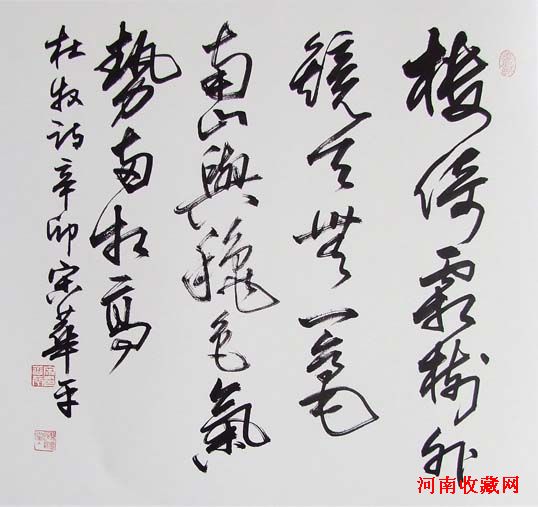 楼倚霜樹外
鏡天無一毫
南山與穐色氣
勢兩相高
杜牧詩辛卯宋華平
河南收藏网